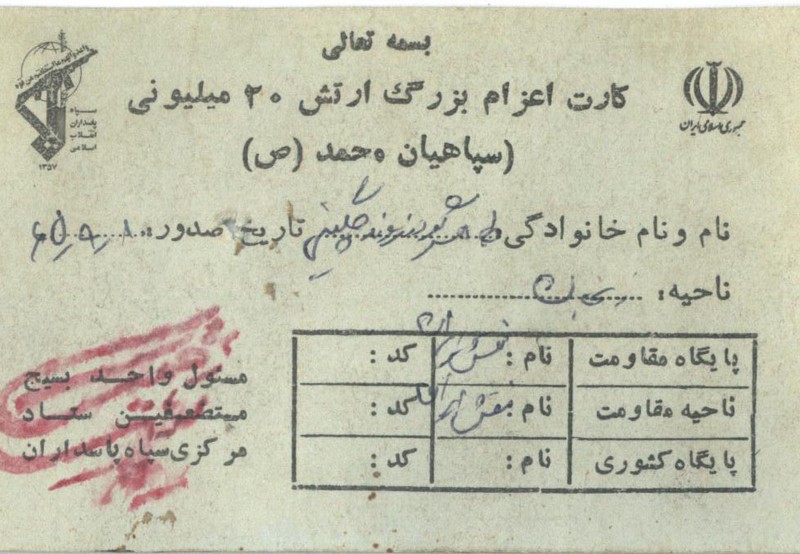 بسمه تعالی
کارت اعزام بزرگ ارتش ۲۰ میلیونی
(سپاهیان محمد (ص)
جمهوری اسلامی ایران
سپاه
پاسداران
انقلاب
اسلامی
۱۳۵۷
نام و نام خانوادگی تاریخ صدور:
ناحیه:
پایگاه مقاومت نام: کد:
ناحیه مقاومت نام: کد:
پایگاه کشوری نام: کد:
مسئول واحد بسیج
مستضعفین ستاد
مرکزی سپاه پاسداران